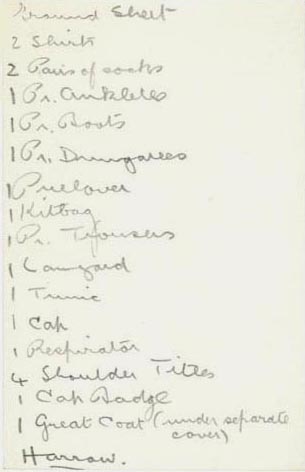 Ground Sheet
2 Shirts
2 Pairs of socks
1 Pr. Anklets
1 Pr. Boots
1 Pr. Dungarees
1 Pullover
1 Kitbag
1 Pr. Trousers
1 Lanyard
1 Tunic
1 Cap
1 Respirator
4 Shoulder Titles
1 Cap Badge
1 Great Coat (under separate
cover)
Harrow.